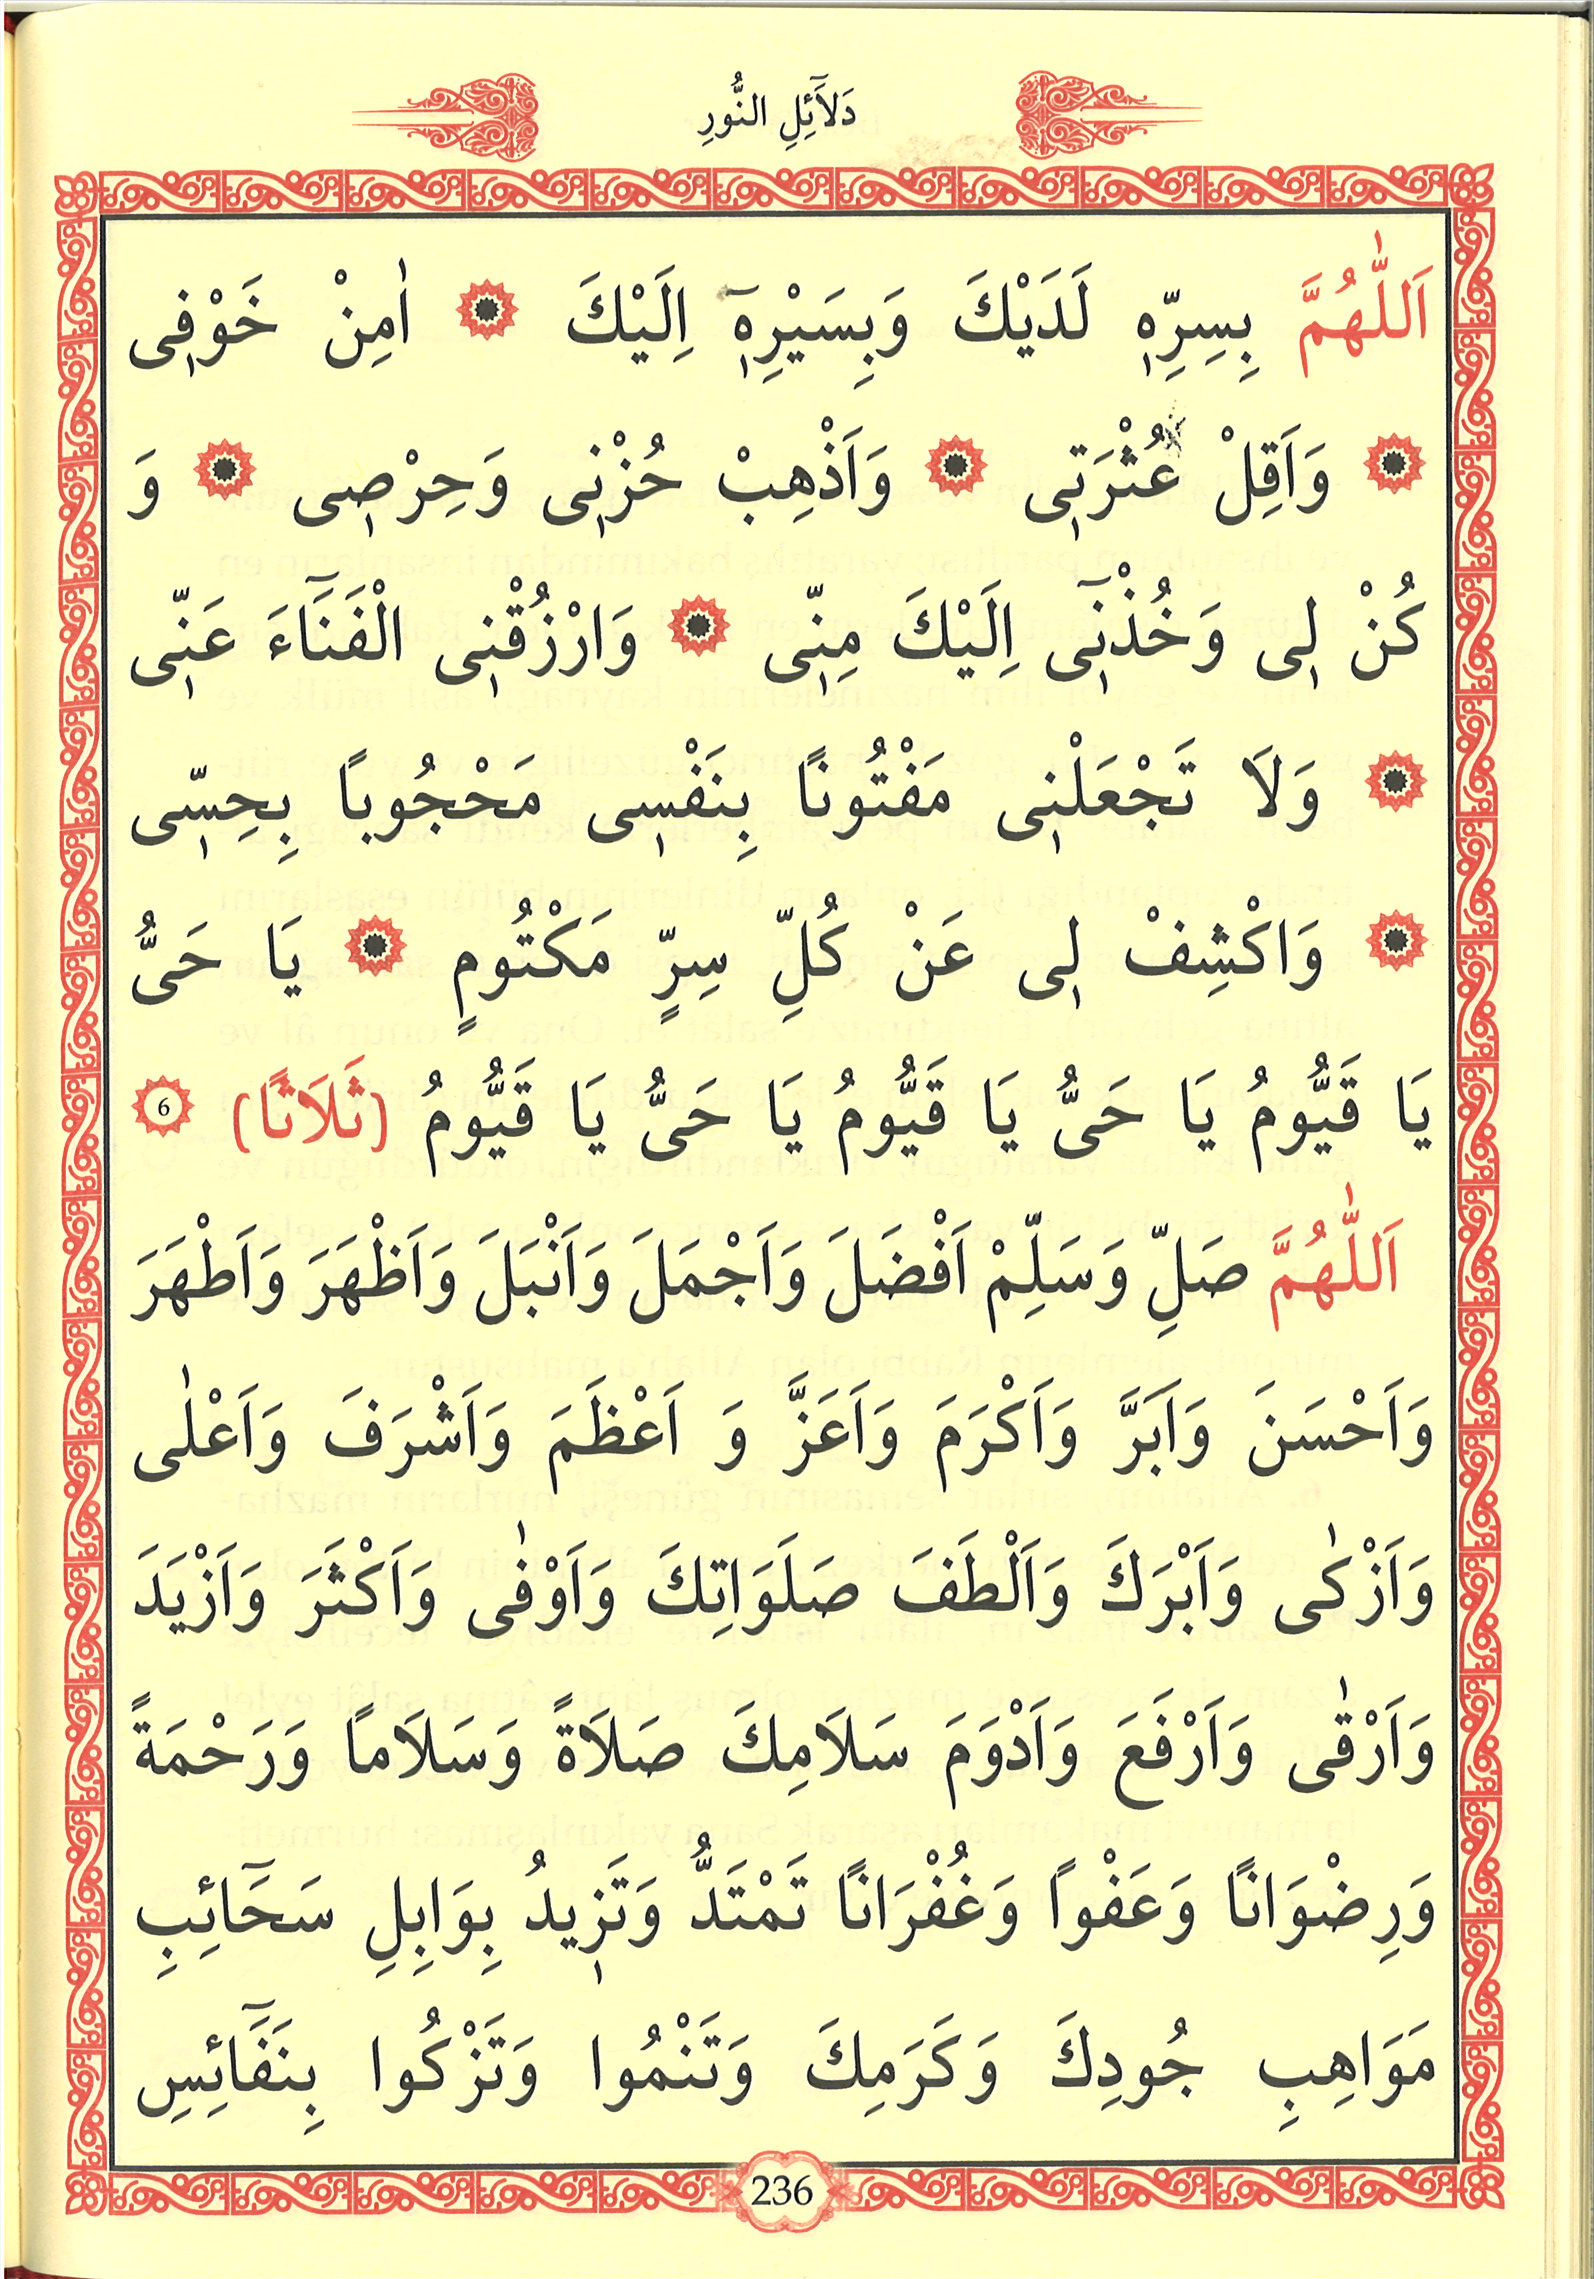 دَلَٓائِلِ النُّورِ
اَللّٰهُمَّ بِسِرِّهٖ لَدَيْكَ وَبِسَيْرِهٖٓ اِلَيْكَ ۞ اٰمِنْ خَوْفٖى
۞ وَاَقِلْ عُثْرَتٖى ۞ وَاَذْهِبْ حُزْنٖى وَحِرْصٖى ۞ وَ
كُنْ لٖى وَخُذْنٖٓى اِلَيْكَ مِنّٖى ۞ وَارْزُقْنٖى الْفَنَٓاءَ عَنّٖى
۞ وَلَا تَجْعَلْنٖى مَفْتُونًا بِنَفْسٖى مَحْجُوبًا بِحِسّٖى
۞ وَاكْشِفْ لٖى عَنْ كُلِّ سِرٍّ مَكْتُومٍ ۞ يَا حَىُّ
يَا قَيُّومُ يَا حَىُّ يَا قَيُّومُ يَا حَىُّ يَا قَيُّومُ (ثَلَاثًا) 6
اَللّٰهُمَّ صَلِّ وَسَلِّمْ اَفْضَلَ وَاَجْمَلَ وَاَنْبَلَ وَاَظْهَرَ وَاَطْهَرَ
وَاَحْسَنَ وَاَبَرَّ وَاَكْرَمَ وَاَعَزَّ وَ اَعْظَمَ وَاَشْرَفَ وَاَعْلٰى
وَاَزْكٰى وَاَبْرَكَ وَاَلْطَفَ صَلَوَاتِكَ وَاَوْفٰى وَاَكْثَرَ وَاَزْيَدَ
وَاَرْقٰى وَاَرْفَعَ وَاَدْوَمَ سَلَامِكَ صَلَاةً وَسَلَامًا وَرَحْمَةً
وَرِضْوَانًا وَعَفْوًا وَغُفْرَانًا تَمْتَدُّ وَتَزٖيدُ بِوَابِلِ سَحَٓائِبِ
مَوَاهِبِ جُودِكَ وَكَرَمِكَ وَتَنْمُوا وَتَزْكُوا بِنَفَٓائِسِ
236